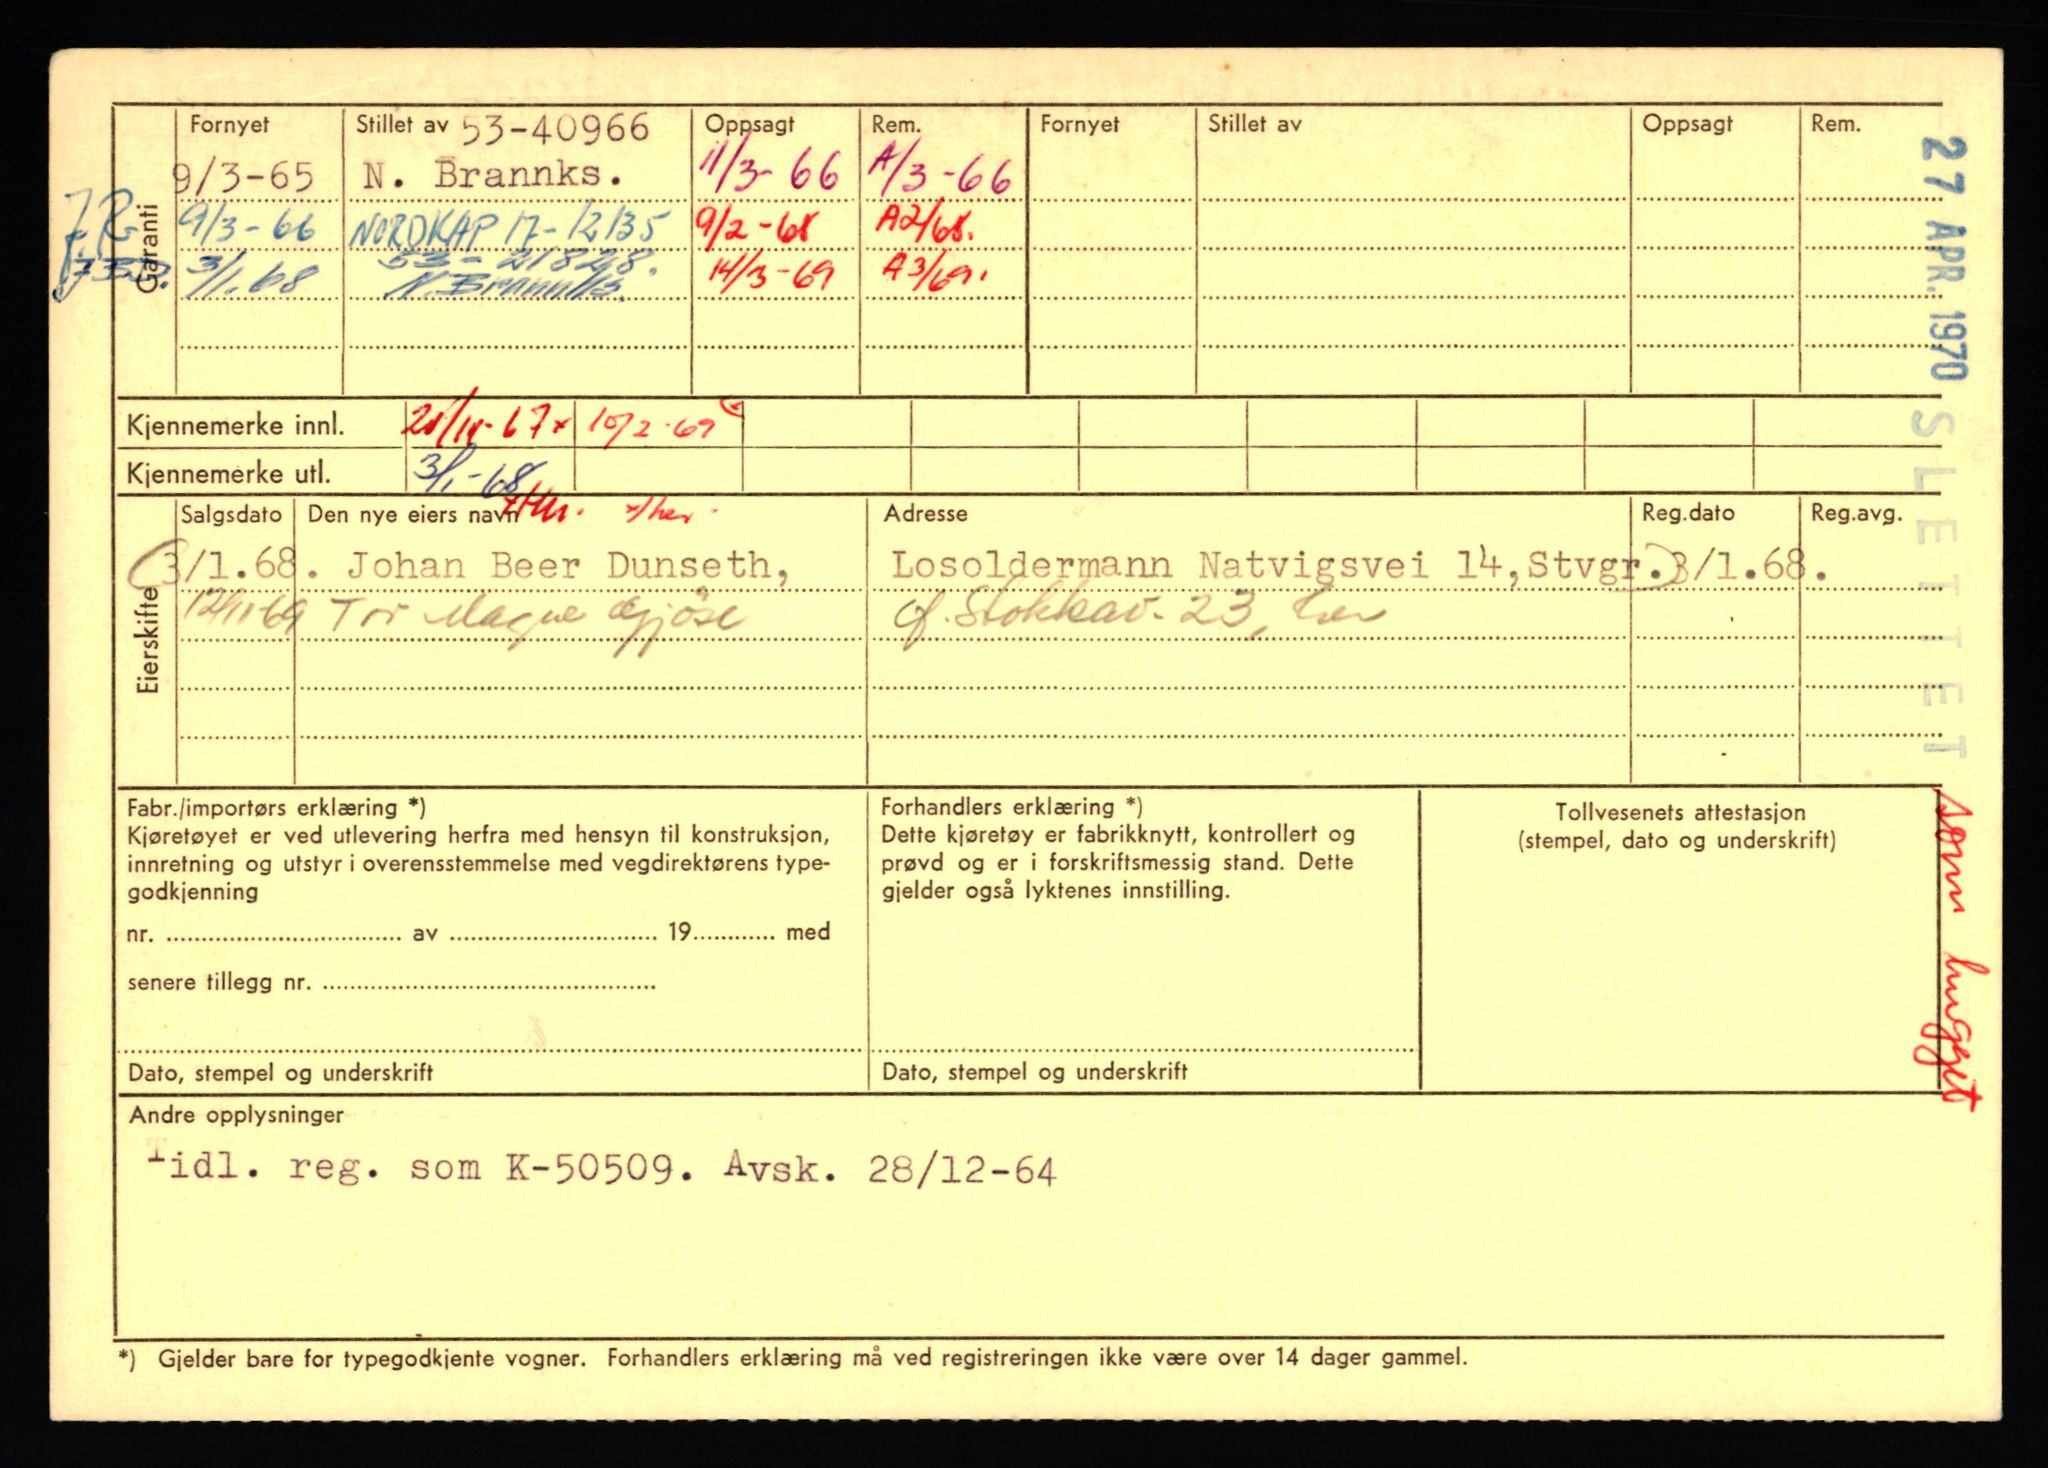 Fornyet Stillet av 53-40966 Oppsagt Rem. Fornyet Stillet av Oppsagt Rem.
9/3-65 N. Brannks. 11/3-66 A/3-66
9/3-66 NORDKAP 17-12135 9/2-68 A2/68.
3/1.68 53-21828. 14/3-69 A3/69.
N. Brannks.
Garanti
Kjennemerke innl. 10/2-69
Kjennemerke utl. 3/1-68
Salgsdato Den nye eiers navn x/her. Adresse Reg.dato Reg.avg.
3/1.68. Johan Beer Dunseth, Losoldermann Natvigsvei 14, Stvgr. 3/1.68.
12/11-69 Tor Magne Gjøse Stokkav. 23, her
Eierskifte
Fabr./importørs erklæring *)
Kjøretøyet er ved utlevering herfra med hensyn til konstruksjon,
innretning og utstyr i overensstemmelse med vegdirektørens type-
godkjenning
nr. av 19 med
senere tillegg nr.
Dato, stempel og underskrift
Forhandlers erklæring *)
Dette kjøretøy er fabrikknytt, kontrollert og
prøvd og er i forskriftsmessig stand. Dette
gjelder også lyktenes innstilling.
Dato, stempel og underskrift
Tollvesenets attestasjon
(stempel, dato og underskrift)
27 APR. 1970 SLETTET som hugget
Andre opplysninger
Tidl. reg. som K-50509. Avsk. 28/12-64
*) Gjelder bare for typegodkjente vogner. Forhandlers erklæring må ved registreringen ikke være over 14 dager gammel.